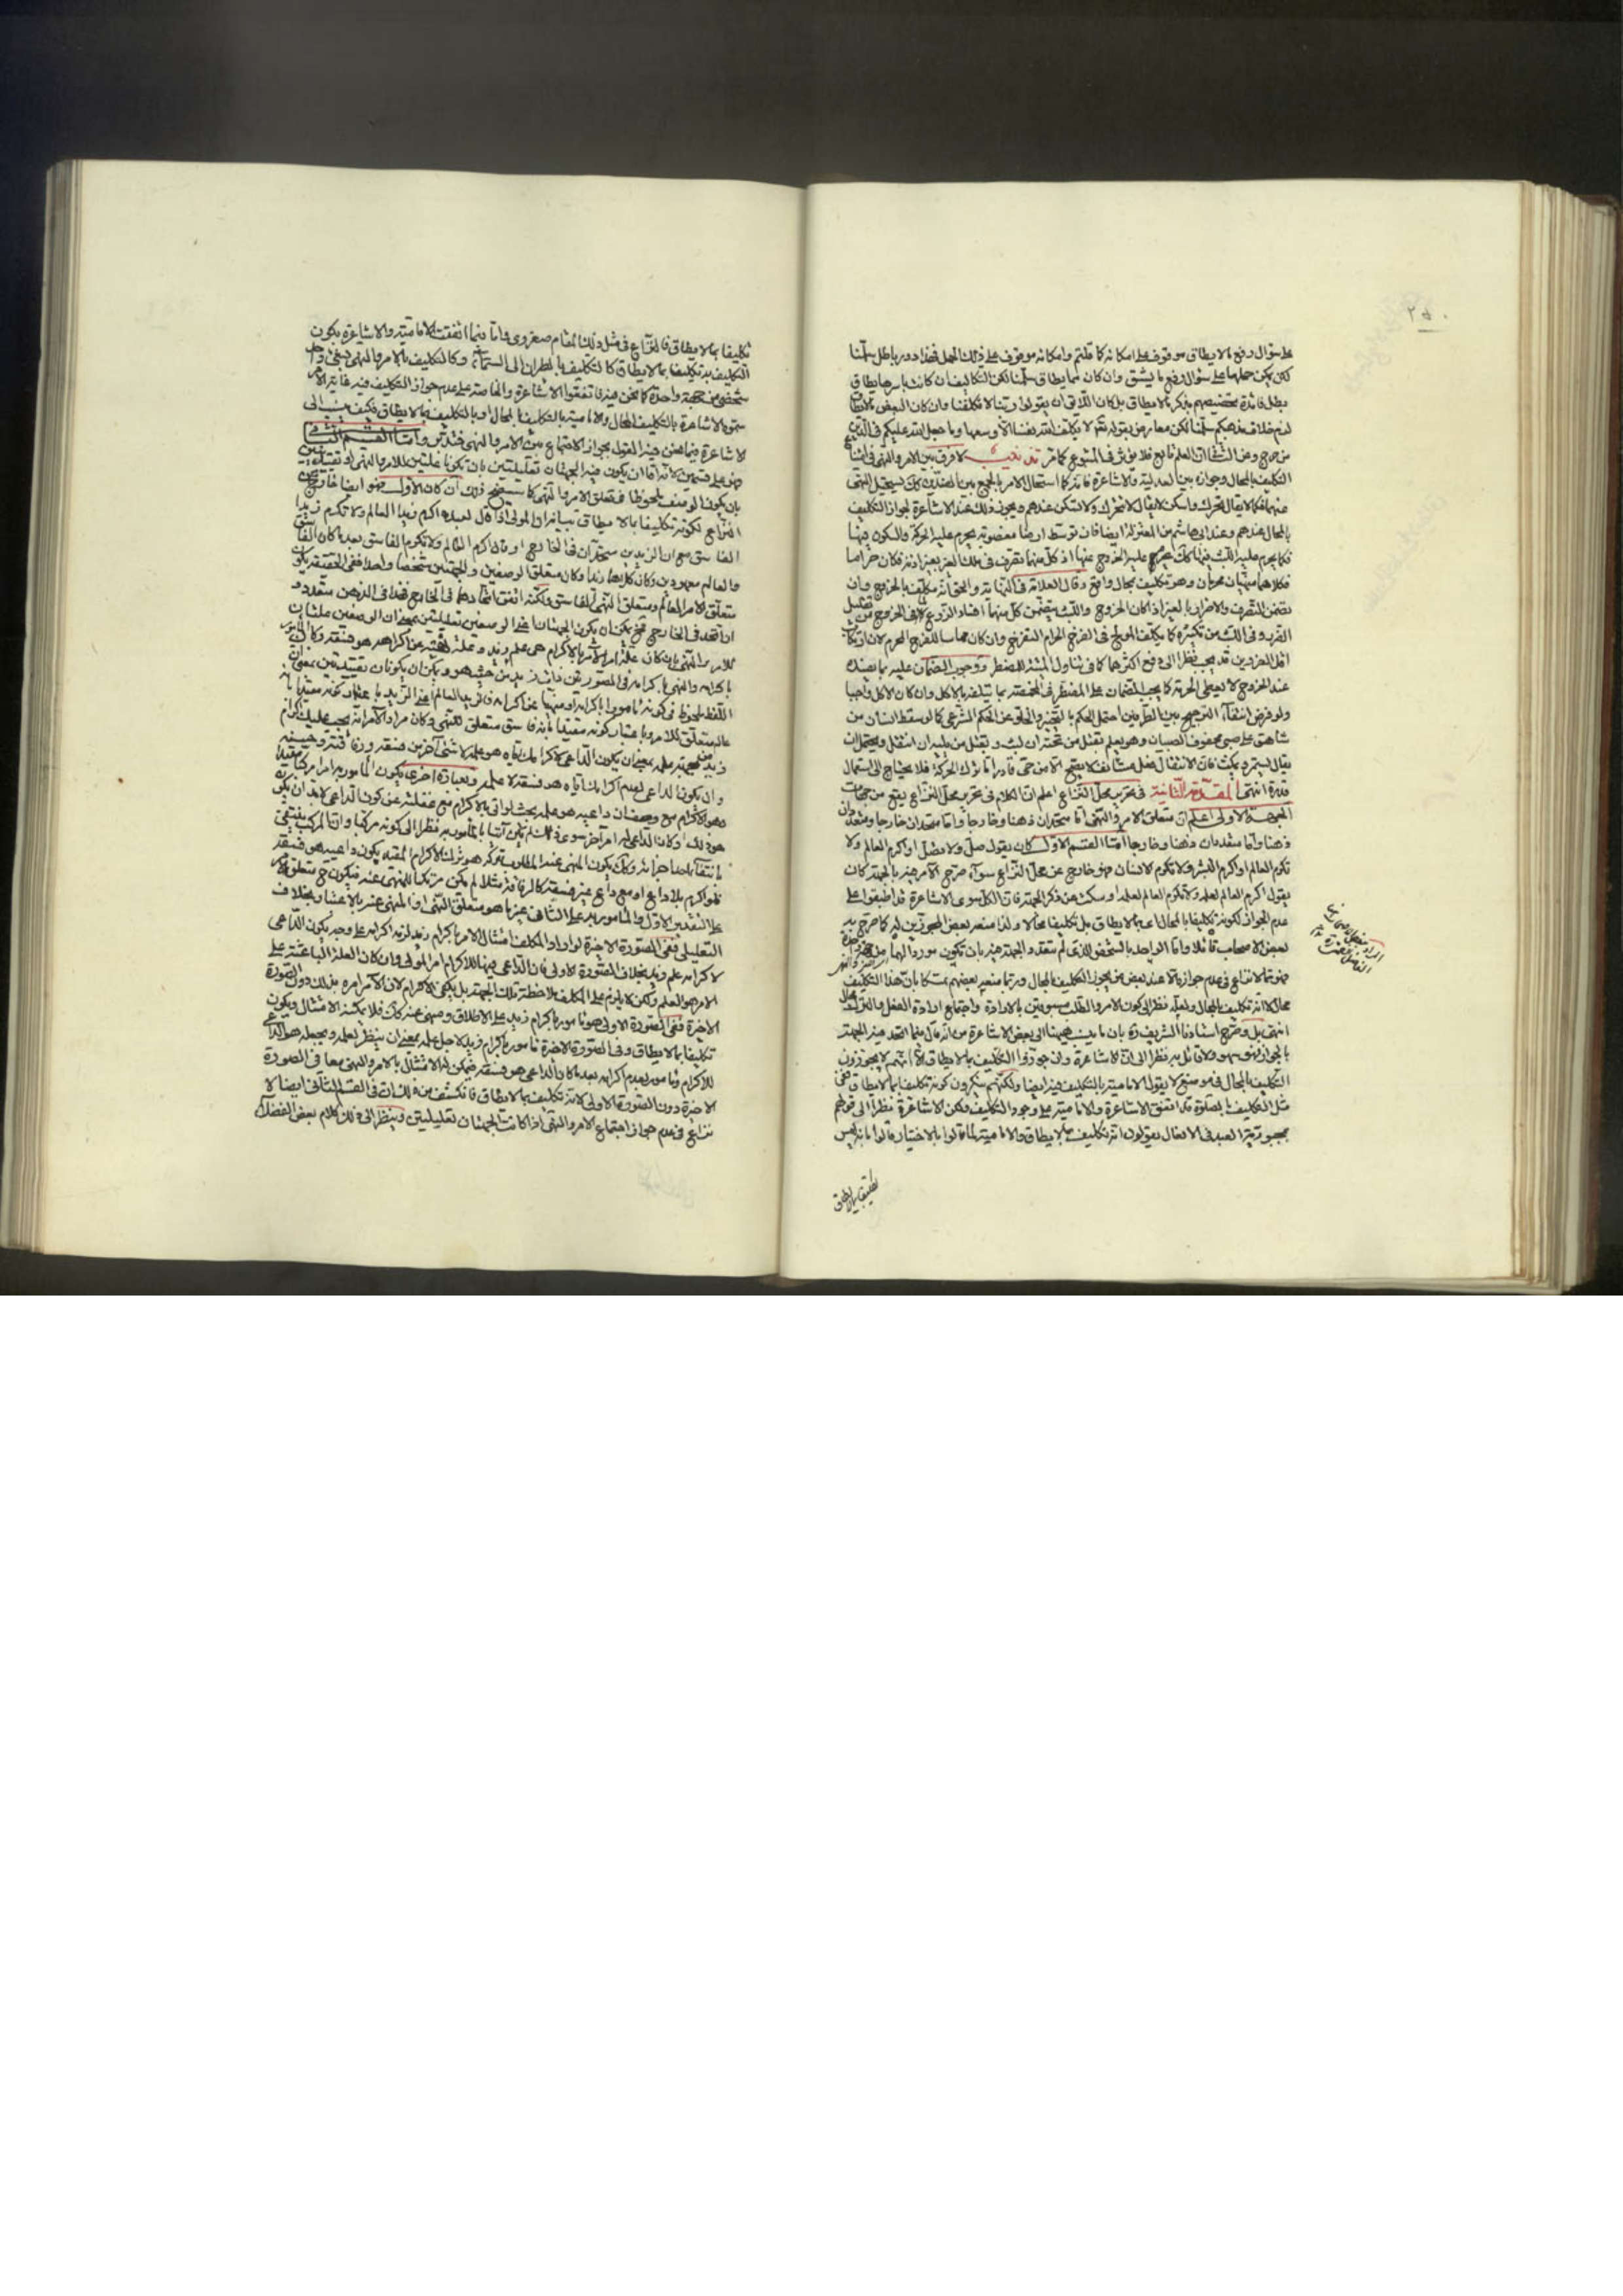 على سؤال رفع ما لا يطاق موقوف على امكانه كما قلتم وامكانه موقوف على ذلك الحمل فهذا دور باطل سلمنا
لكن يمكن حملها على سؤال رفع ما يشق وان كان مما يطاق سلمنا لكن التكاليف ان كانت باسرها يطاق
بطل فائدة تخصيصهم بذكر ما لا يطاق بل كان اللائق ان يقولوا ربنا لا تكلفنا وان كان البعض ما لا يطاق
لزم خلاف مذهبكم سلمنا لكن معارض بقوله تعالى لا يكلف الله نفسا الا وسعها وما جعل الله عليكم في الدين
من حرج وعن الثالث ان العلم تابع فلا يؤثر في المتبوع كما مر تذنيب لا فرق بين الامر والنهي في
التكليف بالمحال وجوازه بين العدلية والاشاعرة فانه كما استحال الامر بالجمع بين الضدين كك يستحيل النهي
عنهما فكما لا يقال تحرك واسكن لا يقال لا تتحرك ولا تسكن عندهم ويجوز ذلك عند الاشاعرة لجواز التكليف
بالمحال عندهم وعند ابي هاشم من المعتزلة ايضا فان توسط ارضا مغصوبة يحرم عليه الحركة والسكون فيها
فكما يحرم عليه اللبث فيها كك يحرم عليه الخروج عنها اذ كل منهما تصرف في ملك الغير بغير اذنه فكان حراما
فكلاهما منهيان محرمان وهو تكليف بمحال واقع وقال العلامة في النهاية والحق انه مكلف بالخروج وان
تضمن التصرف والاضرار بالغير اذ كان الخروج واللبث يتضمن كل منهما افساد الزرع لان في الخروج تقليل
الضرر وفي اللبث تكثيره كما يكلف المولج في الفرج الحرام النزع وان كان مماسا للفرج المحرم لان ارتكاب
اقل الضررين قد يجب نظرا الى دفع اكثرهما كما في تناول الميتة للمضطر ووجوب الضمان عليه بما يفسده
عند الخروج لا يعطى الحرمة كما يجب الضمان على المضطر في المخمصة بما يتلفه بالاكل وان كان الاكل واجبا
ولو فرض انتفاء الترجيح بين الطرفين احتمل الحكم بالتخيير والخلو عن الحكم الشرعي كما لو سقط انسان من
شاهق على صبي محفوف بالصبيان وهو يعلم بقتل من تحته ان لبث وبقتل من يليه ان انتقل ويحتمل ان
يقال يستمر ويمكث فان الانتقال فعل مستانف لا يصح الا من حي قادر اما ترك الحركة فلا يحتاج الى استعمال
قدرة انتهى المقدمة الثانية في تحرير محل النزاع اعلم ان الكلام في تحرير محل النزاع يقع من جهات
الجهة الاولى اعلم ان متعلق الامر والنهي اما متحدان ذهنا وخارجا واما متحدان خارجا ومتعددان
ذهنا واما متعددان ذهنا وخارجا اما القسم الاول كان يقول صل ولا تصل او اكرم العالم ولا
تكرم العالم او اكرم البشر ولا تكرم الانسان فهو خارج عن محل النزاع سواء صرح الآمر فيه بالجهة كان
يقول اكرم العالم لعلمه ولا تكرم العالم لعلمه او سكت عن ذكر الجهة فان الكل سوى الاشاعرة قد اطبقوا على
عدم الجواز لكونه تكليفا بالمحال اعني بما لا يطاق بل تكليفا محالا ولذا منعه بعض المجوزين له كما صرح به
بعض الاصحاب قائلا واما الواحد بالشخص الذي لم يتعدد الجهة فيه بان يكون موردا لهما من جهة واحدة
فهو مما لا نزاع في عدم جوازه الا عند بعض من يجوز التكليف بالمحال وربما منعه بعضهم تمسكا بان هذا التكليف
محال لا انه تكليف بالمحال ولعله نظرا الى كون الامر والطلب مسبوقين بالارادة واجتماع ارادة الفعل والترك محال
انتهى بل صرح استادنا الشريف ره بان ما نسب ههنا الى بعض الاشاعرة من انه قال فيما اتحد فيه الجهة
بالجواز فهو سهو ولا قائل به نظرا الى ان الاشاعرة وان جوزوا التكليف بما لا يطاق الا انهم لا يجوزون
التكليف بالمحال في موضع لا يقول الامامية بالتكليف فيه ايضا ولكنهم ينكرون كونه تكليفا بما لا يطاق ففي
مثل التكليف بالصلوة قد اتفق الاشاعرة والامامية على وجود التكليف ولكن الاشاعرة نظرا الى قولهم
بمجبورية العبد في الافعال يقولون انه تكليف بما لا يطاق والامامية لما قالوا بالاختيار قالوا بانه ليس
تكليفا بما لا يطاق
تكليفا بما لا يطاق فالنزاع في مثل ذلك المقام صغروي واما فيما اتفقت الامامية والاشاعرة بكون
التكليف به تكليفا بما لا يطاق كالتكليف بالطيران الى السماء وكالتكليف بالامر والنهي في شيء واحد
شخصي من جهة واحدة كما نحن فيه فاتفقوا الاشاعرة والخاصة على عدم جواز التكليف فيه غاية الامر
سموه الاشاعرة بالتكليف المحال والامامية بالتكليف بالمحال او بالتكليف بما لا يطاق فكيف ينسب الى
الاشاعرة فيما نحن فيه القول بجواز الاجتماع بين الامر والنهي فتدبر واما القسم الثاني
فهو على قسمين لانه اما ان يكون فيه الجهتان تعليليتين بان تكونا علتين للامر والنهي او تقييديتين
بان يكون الوصف ملحوظا في متعلق الامر والنهي كما سيتضح ذلك ان كان الاول فهو ايضا خارج عن
النزاع لكونه تكليفا بما لا يطاق بيانه ان المولى اذا قال لعبده اكرم زيدا العالم ولا تكرم زيدا
الفاسق مع ان الزيدين متحدان في الخارج او قال اكرم العالم ولا تكرم الفاسق بعد ما كان الفاسق
والعالم معهودين وكان كلاهما زيدا وكان متعلق الوصفين والجهتين شخصا واحدا ففي الحقيقة يكون
متعلق الامر العالم ومتعلق النهي الفاسق ولكنه اتفق اتحادهما في الخارج فهذا في الذهن متعدد و
ان اتحد في الخارج فح يمكن ان يكون الجهتان اعني الوصفين تعليليتين بمعنى ان الوصفين علتان
للامر والنهي بان كان علة امر الآمر بالاكرام هي علم زيد وعلة نهيه عن اكرامه هو فسقه وكان المامور
باكرامه والنهي باكرامه في الصورتين ذات زيد من حيث هو ويمكن ان يكونان تقييديتين بمعنى ان
اللفظ ملحوظ في كونه مامورا باكرامه ومنهيا عن اكرامه فان زيد العالم اعني الزيد باعتبار كونه مقيدا بانه
عالم متعلق للامر وباعتبار كونه مقيدا بانه فاسق متعلق للنهي وكان مراد الآمر انه يجب عليك اكرام
زيد من جهة علمه بمعنى ان يكون الداعي لاكرامك اياه هو علمه لا شيء آخر من فسقه ورفاقته وحسنه
وان يكون الداعي لعدم اكرامك اياه هو فسقه لا علمه وبعبارة اخرى يكون المامور به امرا مركبا مقيدا
وهو الاكرام مع وصف ان داعيه هو علمه بحيث لو اتى بالاكرام مع غفلته عن كون الداعي لا بد ان يكون
هو ذلك او كان الداعي له امر آخر سوى ذلك لم يكن آتيا بالمامور به نظرا الى كونه مركبا وان المركب ينتفي
بانتفاء احد اجزائه وكك يكون المنهي عنه المطلوب تركه هو ترك الاكرام المقيد بكون داعيه هو فسقه
فلو اكرم بلا داع او مع داع غير فسقه كالرفاقة مثلا لم يكن مرتكبا للمنهي عنه فيكون ح متعلق الامر
على التقدير الاول والمامور به على الثاني غير ما هو متعلق النهي او المنهي عنه بالاعتبار بخلاف
التعليلي ففي الصورة الاخيرة لو اراد المكلف امتثال الامر باكرام زيد لزمه اكرامه على وجه يكون الداعي
لاكرامه علم زيد بخلاف الصورة الاولى فان الداعي فيها للاكرام امر المولى وان كان العلة الباعثة على
الامر هو العلم ولكن لا يلزم على المكلف ملاحظة تلك الجهة بل يكفي الاكرام لان الآمر امره بذلك دون الصورة
الاخيرة ففي الصورة الاولى هو مامور باكرام زيد على الاطلاق ومنهي عنه كك فلا يمكنه الامتثال ويكون
تكليفا بما لا يطاق وفي الصورة الاخيرة مامور باكرام زيد لاجل علمه بمعنى ان ينظر لعلمه ويجعله هو الداعي
للاكرام ومامور بعدم اكرامه بعد ما كان الداعي هو فسقه فيمكن له الامتثال بالامر والنهي معا في الصورة
الاخيرة دون الصورة الاولى لانه تكليف بما لا يطاق فانكشف من ذلك ان في القسم الثاني ايضا لا
نزاع في عدم جواز اجتماع الامر والنهي اذا كانت الجهتان تعليليتين وينظر الى ذلك كلام بعض الفضلاء